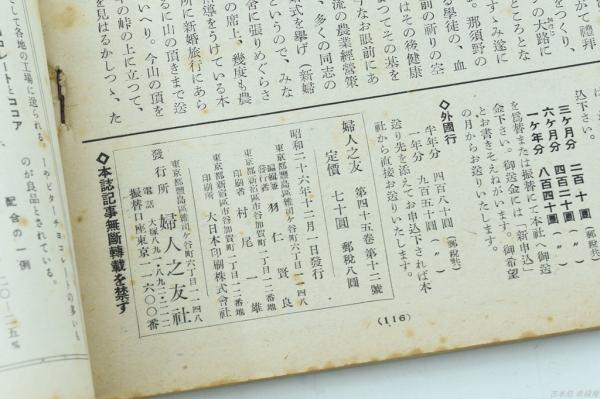 て禮拜
をつくり、
の大路に
ところとな
すゝみ遂に
る。那須野の
る學徒の、血
前の祈りの室
はその後健康
まつてその基を
今なお眼前にあ
流の農業經營策
、多くの同志の
式を擧げ(新婦
というので、みな
舍に張りめぐらさ
の席上、幾度も農
指導をうけている木
所に新婚旅行にあら
るに山の頂きまで送
いへり。今山の頂を
の峠の上に立つて、
を見はるかしつゝ、た
込下さい。
三ケ月分 二百十圓(郵税共)
六ケ月分 四百二十圓(〃)
一ケ年分 八百四十圓(〃)
を爲替または振替にて本社へ御送
金下さい。御送金には「新申込」
とお書きそえねがいます。御希望
の月からお送りいたします。
◇外國行
半年分 四百八十圓(郵税共)
一年分 九百五十圓(〃)
送り先を添えてお申込下されば本
社から直接お送りいたします。
婦人之友 第四十五卷第十二號
定價 七十圓 郵税八圓
昭和二十六年十二月一日發行
東京都豐島區雜司ケ谷町六丁目一一四八
編輯兼發行者 羽仁賢良
東京都新宿區市谷加賀町一丁目一二番地
印刷者 村尾一雄
東京都新宿區市谷加賀町一丁目一二番地
印刷所 大日本印刷株式會社
東京都豐島區雜司ケ谷町六丁目一一四八
發行所 婦人之友社
振替口座東京一一六〇〇番
◇本誌記事無斷轉載を禁ず
(116)
して各地の工場に送られる。
コレートとココア
ーやビターチョコレートの多いも
のが良品とされている。
配合の一例
二〇―二五%